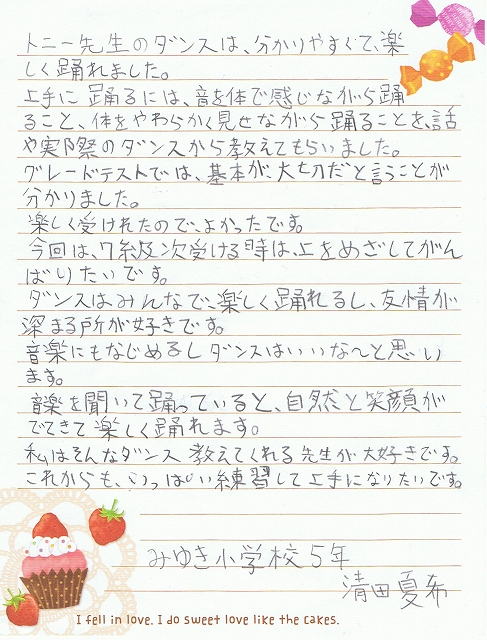 トニー先生のダンスは、分かりやすくて、楽
しく踊れました。
上手に踊るには、音を体で感じながら踊
ること、体をやわらかく見せながら踊ることを、話
や実際のダンスから教えてもらいました。
グレードテストでは、基本が、大切だと言うことが
分かりました。
楽しく受けれたので、よかったです。
今回は、7級次受ける時は、上をめざしてがん
ばりたいです。
ダンスはみんなで、楽しく踊れるし、友情が
深まる所が好きです。
音楽にもなじめるしダンスはいいな〜と思い
ます。
音楽を聞いて踊っていると、自然と笑顔が
でてきて楽しく踊れます。
私はそんなダンス教えてくれる先生が大好きです。
これからも、いっぱい練習して上手になりたいです。
みゆき小学校5年
清田夏希
I fell in love. I do sweet love like the cakes.